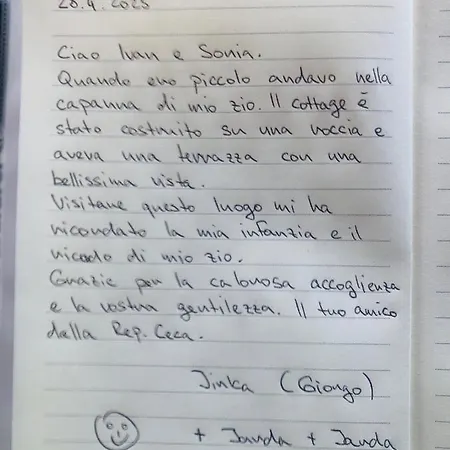 28.4.2025
Ciao Ivan e Sonia.
Quando ero piccolo andavo nella
capanna di mio zio. Il cottage è
stato costruito su una roccia e
aveva una terrazza con una
bellissima vista.
Visitare questo luogo mi ha
ricordato la mia infanzia e il
ricordo di mio zio.
Grazie per la calorosa accoglienza
e la vostra gentilezza. Il tuo amico
dalla Rep. Ceca.
Jirka (Giorgo)
+ Janda + Janda